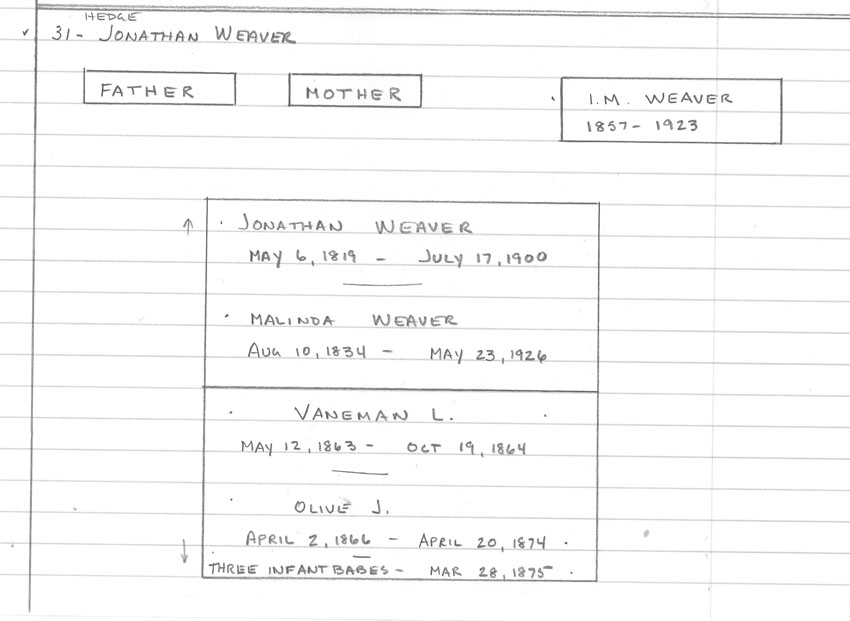 HEDGE
31- JONATHAN WEAVER
FATHER MOTHER I.M. WEAVER
1857- 1923
JONATHAN WEAVER
MAY 6, 1819 - JULY 17, 1900
MALINDA WEAVER
AUG 10, 1834 - MAY 23, 1926
VANEMAN L.
MAY 12, 1863 - OCT 19, 1864
OLIVE J.
APRIL 2, 1866 - APRIL 20, 1874
THREE INFANT BABES - MAR 28, 1875